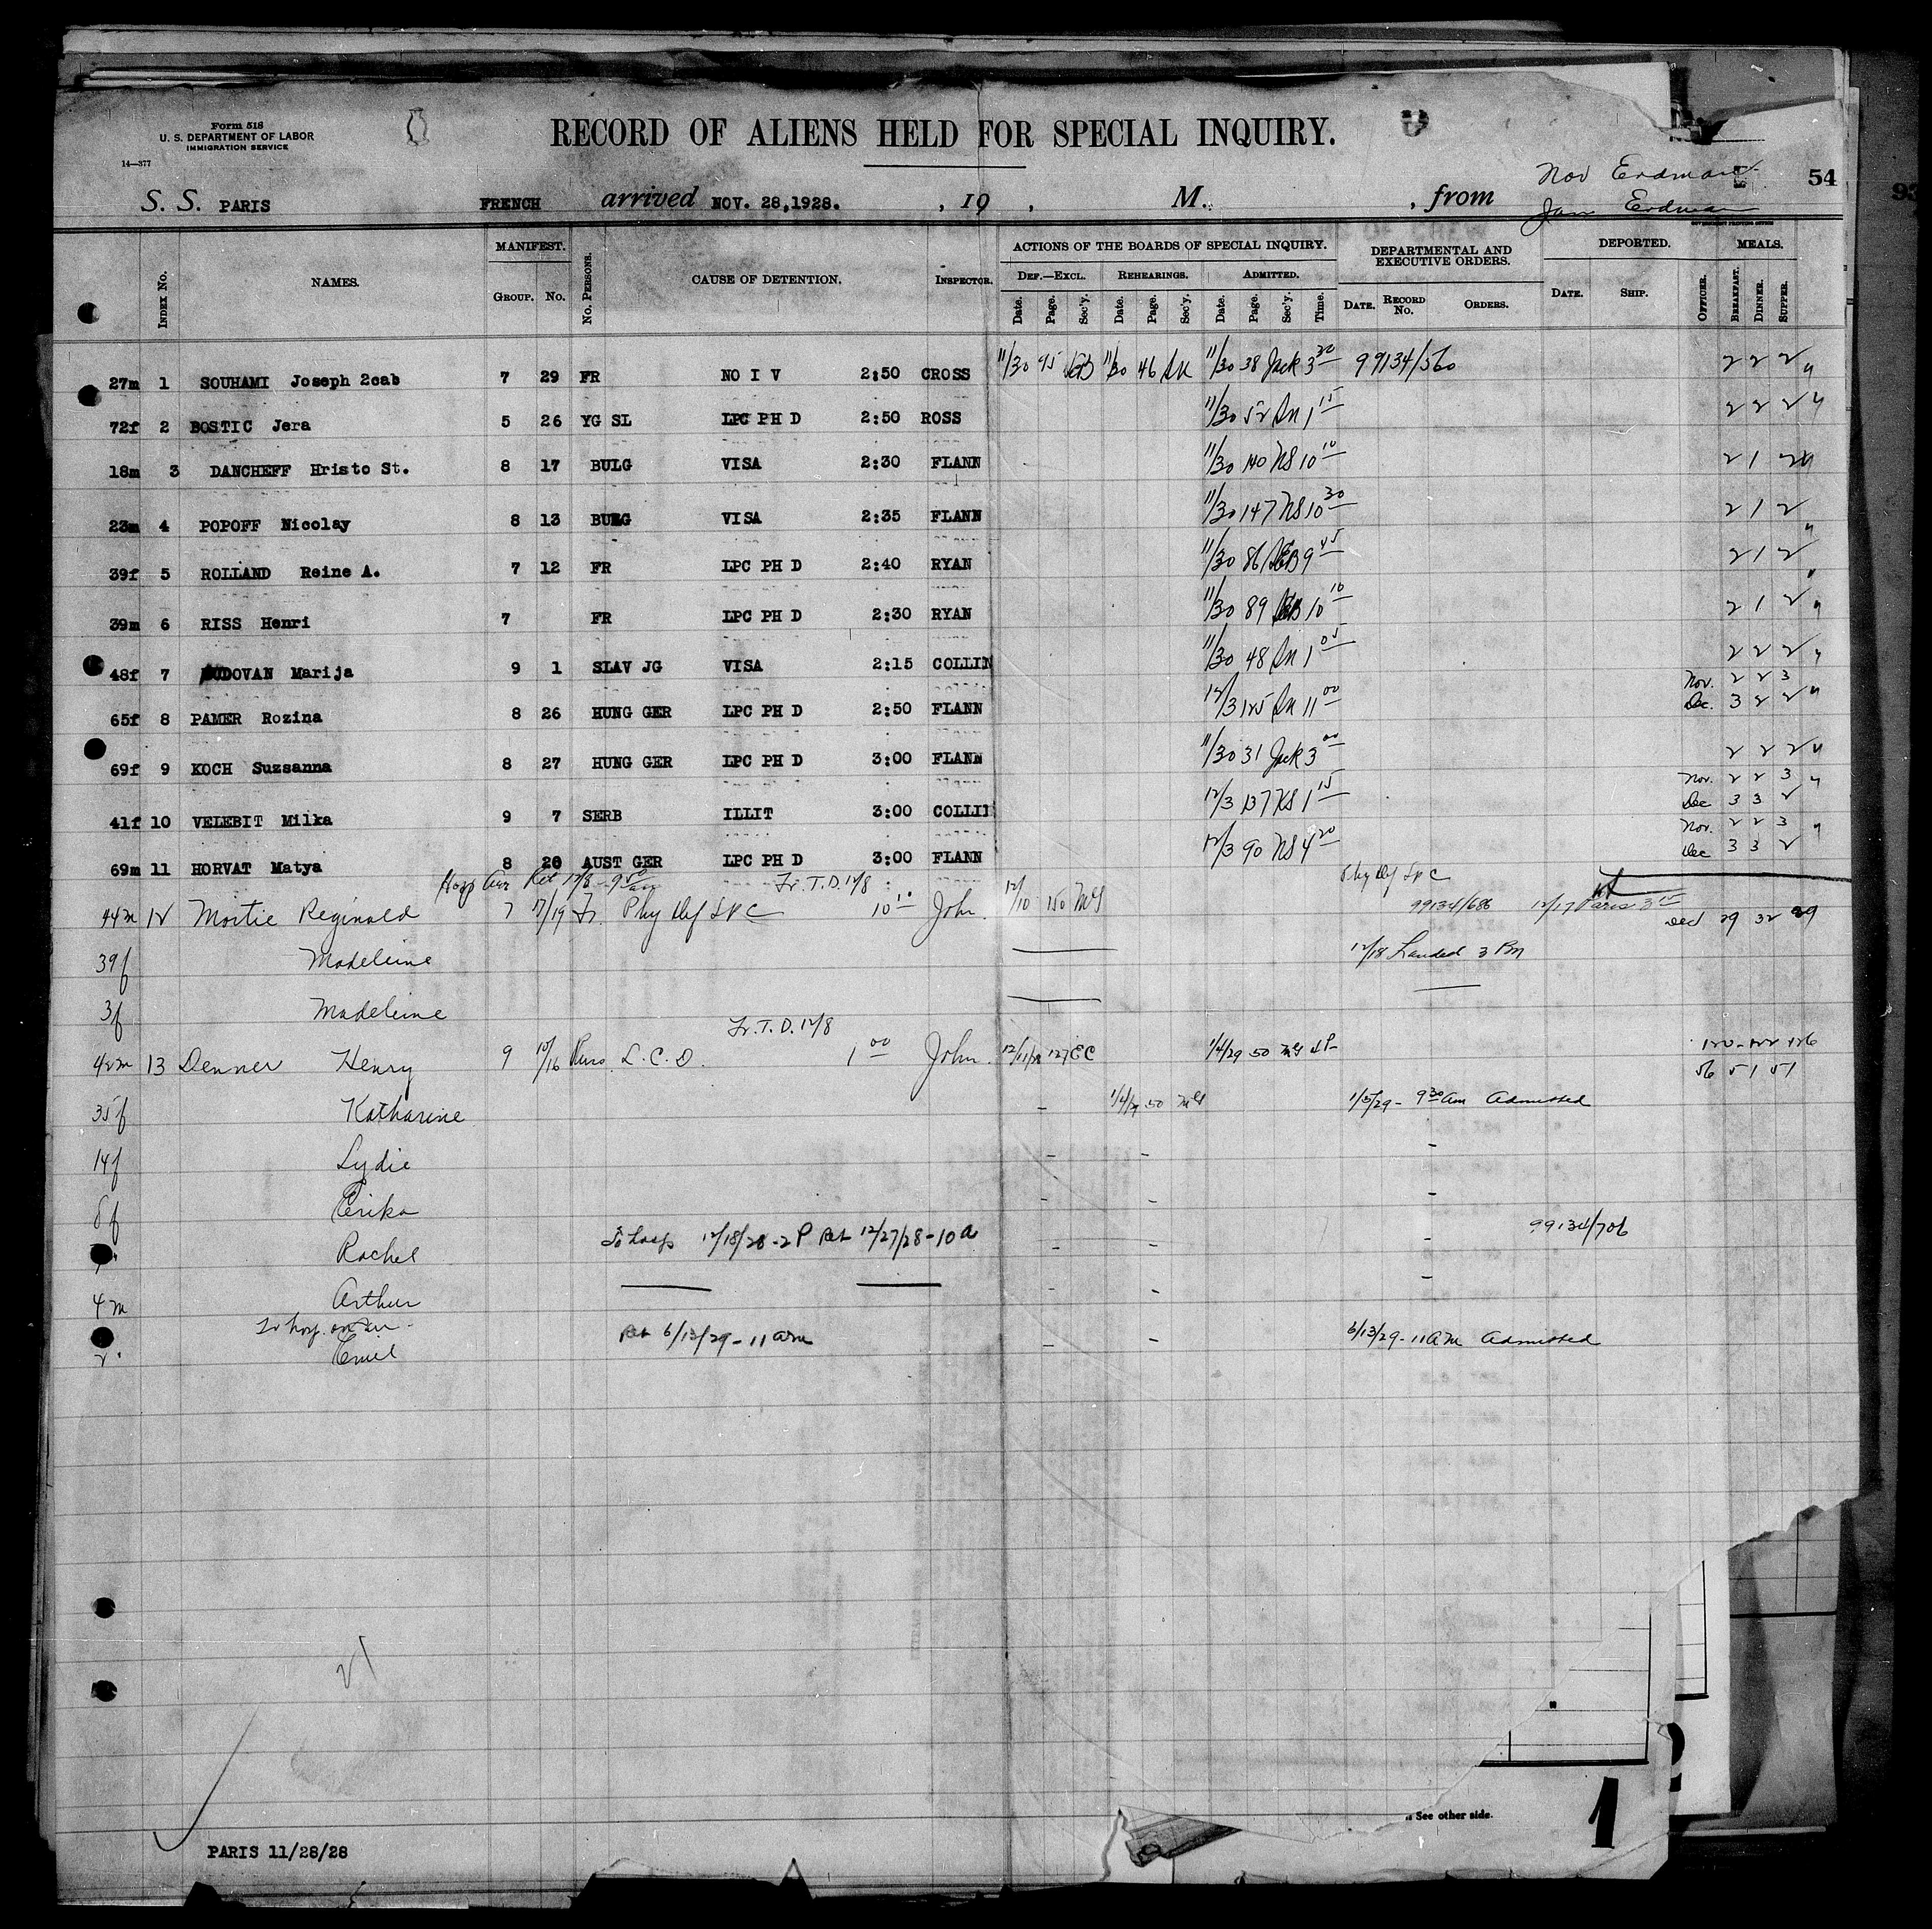 Form 518
U. S. DEPARTMENT OF LABOR
IMMIGRATION SERVICE
14—377
RECORD OF ALIENS HELD FOR SPECIAL INQUIRY.
Nov Erdman
Jan Erdman
54
93
S. S. PARIS FRENCH arrived NOV. 28,1928. , 19 , M. , from
GOVERNMENT PRINTING OFFICE
INDEX NO. NAMES. MANIFEST. GROUP. NO. NO. PERSONS. CAUSE OF DETENTION. INSPECTOR. ACTIONS OF THE BOARDS OF SPECIAL INQUIRY. DEF.—EXCL. Date. Page. Sec'y. REHEARINGS. Date. Page. Sec'y. ADMITTED. Date. Page. Sec'y. Time. DEPARTMENTAL AND EXECUTIVE ORDERS. DATE. RECORD NO. ORDERS. DEPORTED. DATE. SHIP. OFFICER. MEALS. BREAKFAST. DINNER. SUPPER.
27m 1 SOUHAMI Joseph 2cab 7 29 FR NO I V 2:50 CROSS 11/30 45 11/30 46 11/30 38 Jack 3 20 99134/560 2 2 2
72f 2 BOSTIC Jera 5 26 YG SL LPC PH D 2:50 ROSS 11/30 52 1 15 2 2 2
18m 3 DANCHEFF Hristo St. 8 17 BULG VISA 2:30 FLANN 11/30 140 NS 10 10 2 1 2
23m 4 POPOFF Nicolay 8 13 BULG VISA 2:35 FLANN 11/30 147 NS 10 30 2 1 2
39f 5 ROLLAND Reine A. 7 12 FR LPC PH D 2:40 RYAN 11/30 86 9 45 2 1 2
39m 6 RISS Henri 7 FR LPC PH D 2:30 RYAN 11/30 89 10 10 2 1 2
48f 7 DOVAN Marija 9 1 SLAV JG VISA 2:15 COLLIN 11/30 48 1 05 2 2 2
65f 8 PAMER Rozina 8 26 HUNG GER LPC PH D 2:50 FLANN 12/3 125 11 00 Nov. 2 2 3
Dec. 3 2 2
69f 9 KOCH Suzsanna 8 27 HUNG GER LPC PH D 3:00 FLANN 11/30 31 Jack 3 00 2 2 2
41f 10 VELEBIT Milka 9 7 SERB ILLIT 3:00 COLLIN 12/3 137 1 15 Nov. 2 2 3
Dec 3 3 2
69m 11 HORVAT Matya 8 20 AUST GER LPC PH D 3:00 FLANN 12/3 90 NS 4 20 Nov. 2 2 3
Dec 3 3 2
Ret 12/8 - 9 50 am Tr. T. D. 12/8 Phy Def LPC
44m 12 Mortie Reginald 7 17/19 Fr. Phy Def LPC 10 10 John. 12/10 150 99134/686 12/17 Paris 3 15 Dec 29 32 29
39f Madeleine 12/18 Landed 3 PM
3f Madeleine
Tr. T. D. 12/8
42m 13 Denner Henry 9 10/16 Russ. L. C. D. 1 00 John. 12/11/28 127 EC 1/4/29 50 4 P 120 - 122 126
56 51 51
35f Katharine 1/4/29 50 1/5/29 - 9 30 am Admitted
14f Lydie
8f Erika
99134/706
Rachel To hosp 12/18/28 - 2 P Ret 12/27/28 - 10 a
4m Arthur
To hosp.
Emil Ret 6/13/29 - 11 am 6/13/29 - 11 AM Admitted
21
See other side.
1
PARIS 11/28/28